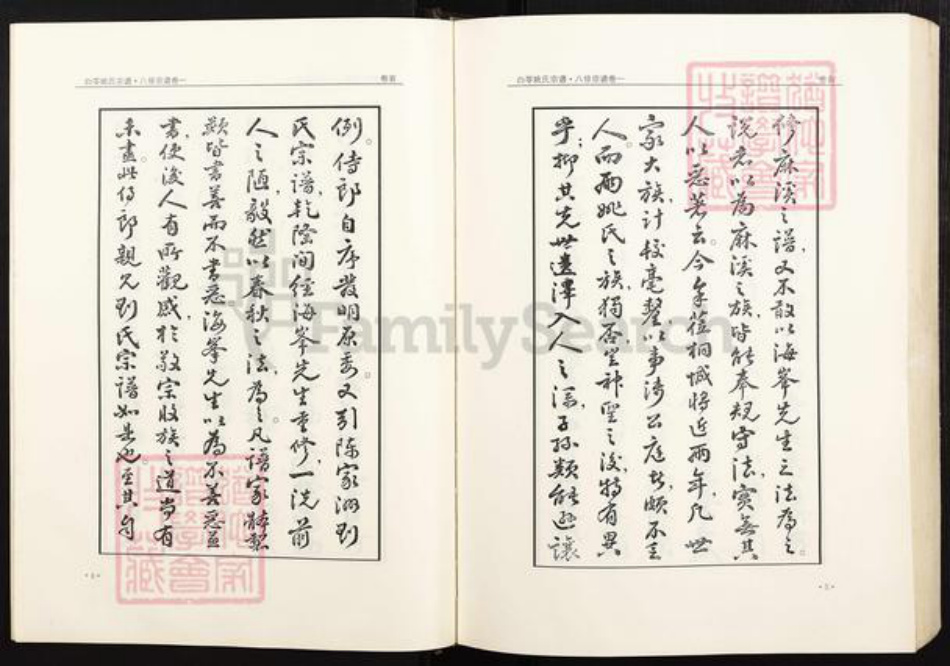 姚氏宗譜・八修宗譜卷一
卷首
例。侍郎自序發明原委。又引陳家洲劉
氏宗譜,乾隆間經海峯先生重修,一洗前
人之陋,毅然以春秋之法,為之。凡譜家體製
類皆書善而不書惡海峯先生以為不善惡並
書,使後人有所觀感,於敬宗收族之道尚有
未盡。此侍郎親見劉氏宗譜如是也。至其自
姚氏宗譜・八修宗譜卷一
卷首
修麻溪之譜,又不敢以海峯先生之法為之。
說者以為麻溪之族,皆能奉規守法,實無其
人以惡著云。今余蒞桐城將近兩年,凡世
家大族,計較毫釐以事涉公庭者,頗不乏
人。而兩姚氏之族,獨否。豈神聖之後,特有異
乎;抑其先世遺澤入人之深,子孫類能遜讓
FamilySearch